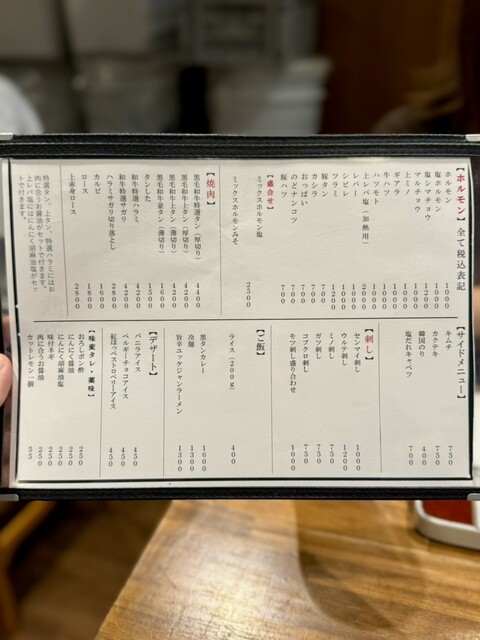 【ホルモン】全て税込表記
ホルモン
塩ホルモン 1000
塩シマチョウ 1200
マルチョウ 1000
上ミノ
ギアラ 1000
牛ハツ 1000
ハツモト
上レバ塩（加熱用）
レバー
シビレ
ツラミ
豚タン
カシラ 700
おっぱい 700
のどナンコツ 700
豚ハツ 700
【盛合せ】
ミックスホルモン塩
ミックスホルモンみそ 2500
【焼肉】
黒毛和牛特選タン（厚切り）
黒毛和牛上タン（厚切り） 4200
黒毛和牛上タン（薄切り） 4200
黒毛和牛並タン（薄切り）
タンした 1500
和牛特選ハラミ
和牛特選サガリ 4200
ハラミサガリ切り落とし 2800
カルビ 1600
ロース 1800
上赤身ロース 2800
特選タン、上タン、特選ハラミにはお
肉に合うお醤油がセットで付きます。
上レバ塩にはにんにく胡麻油塩がセッ
トで付きます。
【サイドメニュー】
キムチ 750
カクテキ 750
韓国のり 400
塩だれキャベツ 700
【刺し】
センマイ刺し 1000
ウルテ刺し 1200
ミノ刺し 750
ガツ刺し 750
コブクロ刺し 750
モツ刺し盛り合わせ 1000
【ご飯】
ライス（200g） 400
黒タンカレー 1600
冷麺 1300
旨辛ユッケジャンラーメン 1300
【デザート】
バニラアイス 450
ベルギーチョコアイス 450
紅ほっぺストロベリーアイス 450
【味変タレ・薬味】
おろしポン酢 250
にんにく醤油 250
にんにく胡麻油塩 250
味付ネギ 250
肉に合うお醤油 250
カットレモン一個